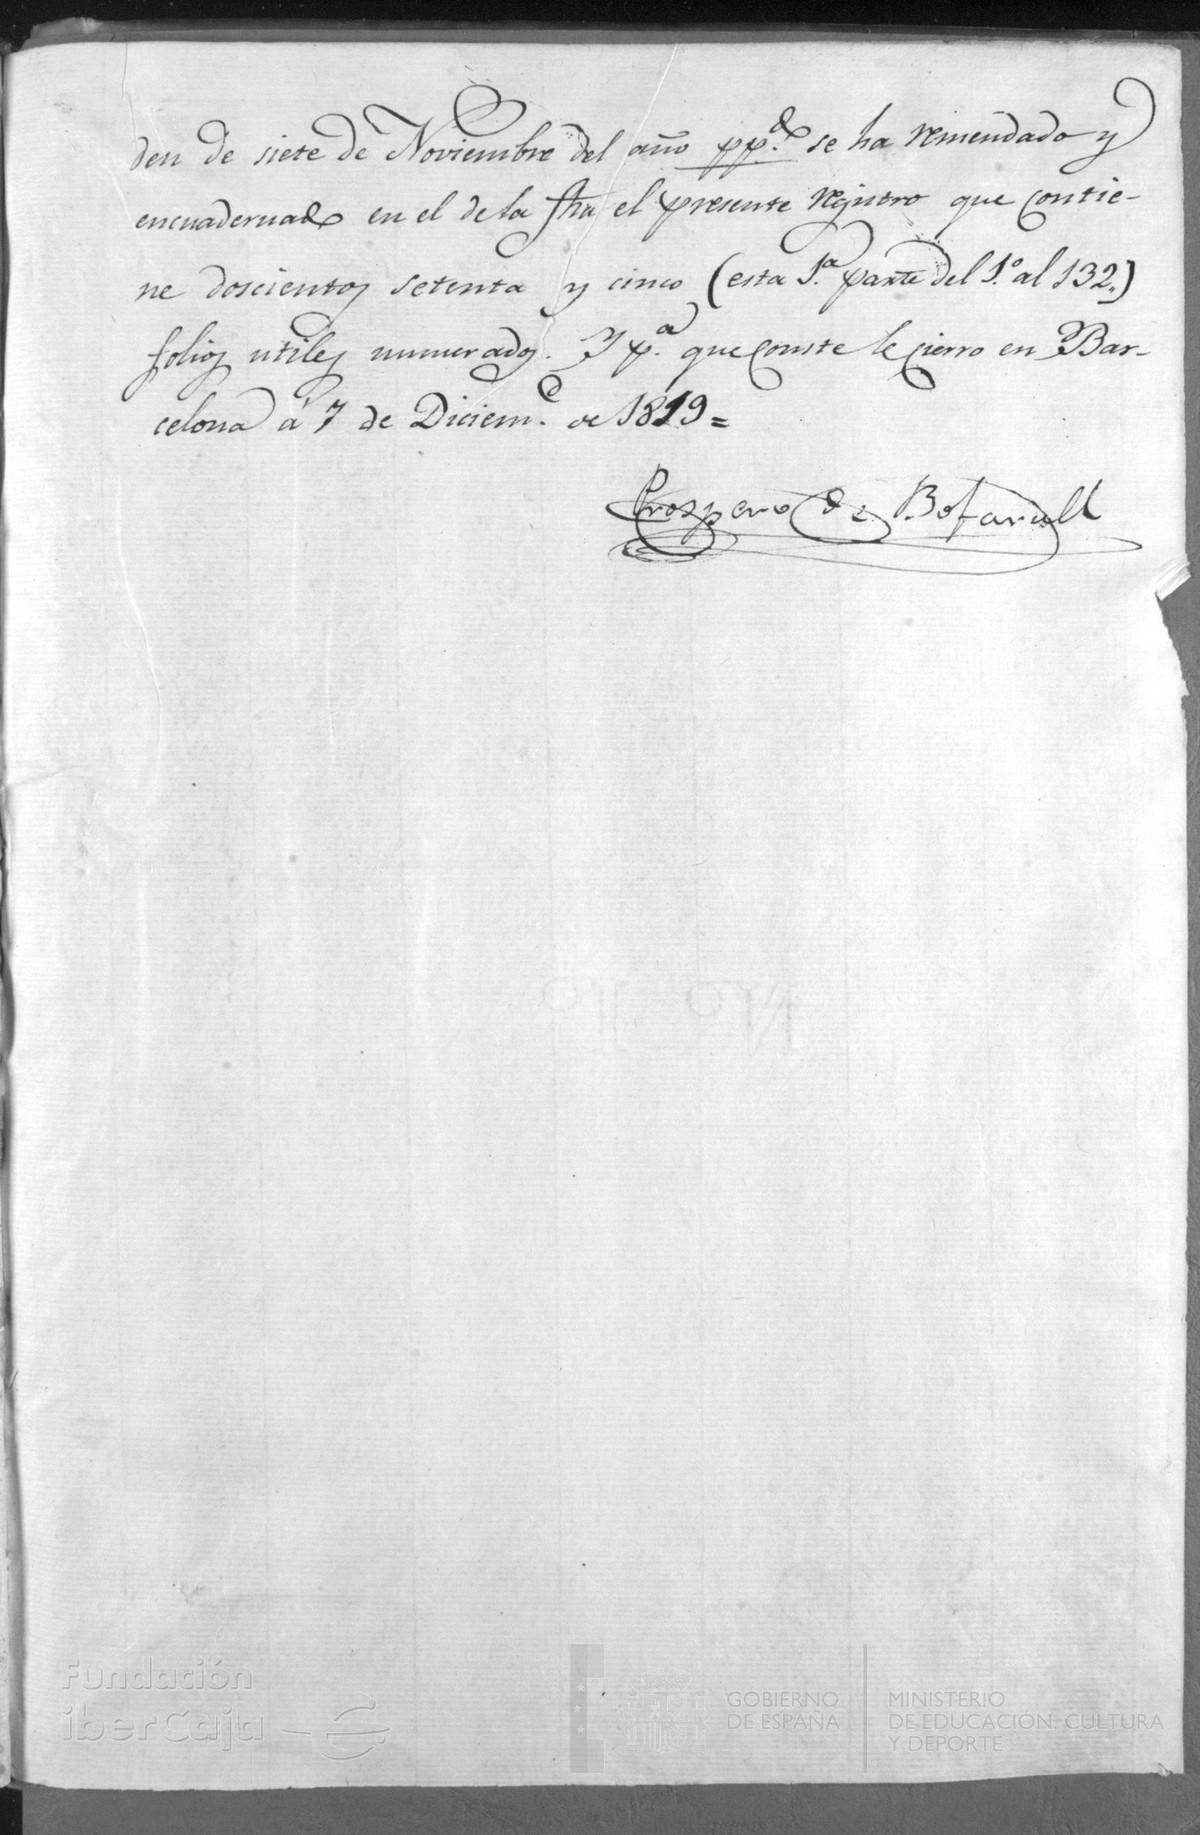 den de siete de Noviembre del año pp.do se ha remendado y
encuadernado en el de la fha el presente registro que contie-
ne doscientos setenta y cinco (esta 1.a parte del 1.o al 132.)
folios utiles numerados. Y p.a que conste le cierro en Bar-
celona á 7 de Diciem.e de 1819=
Prospero de Bofarull
Fundación
iberCaja
GOBIERNO
DE ESPAÑA
MINISTERIO
DE EDUCACIÓN, CULTURA
Y DEPORTE